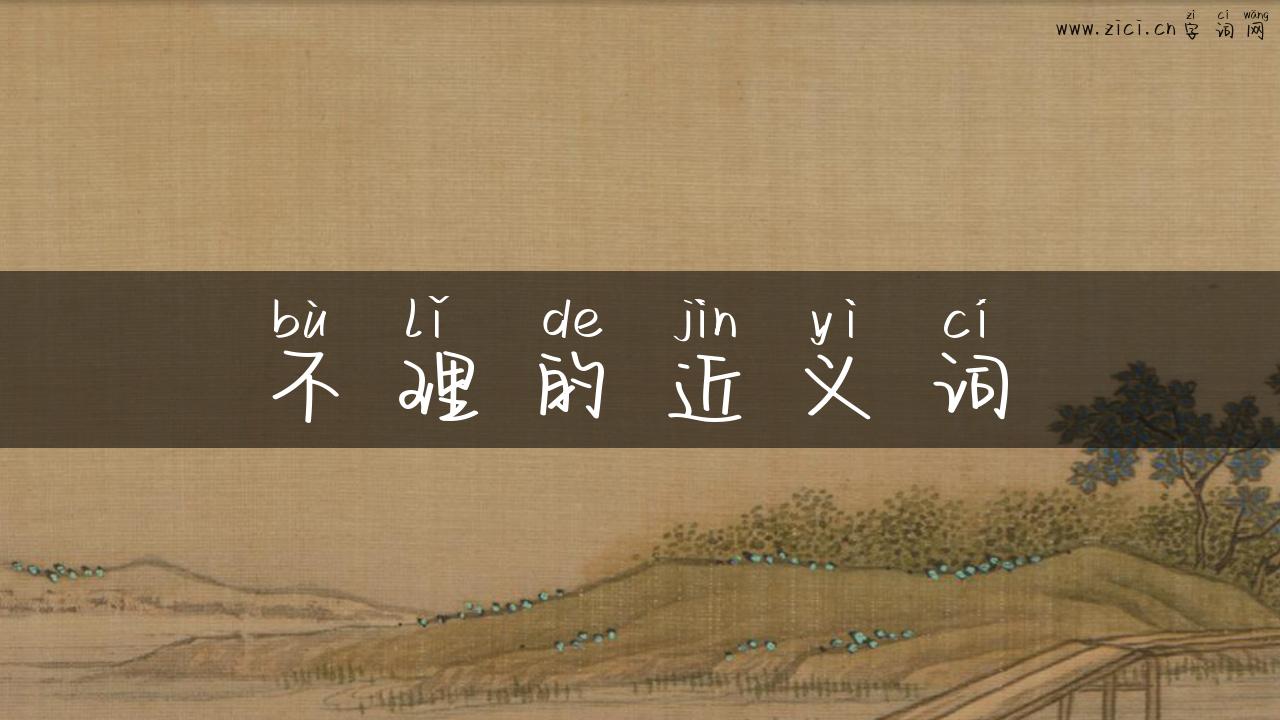 zì cí wǎng
www.zici.cn字词网
bù lǐ de jìn yì cí
不理的近义词